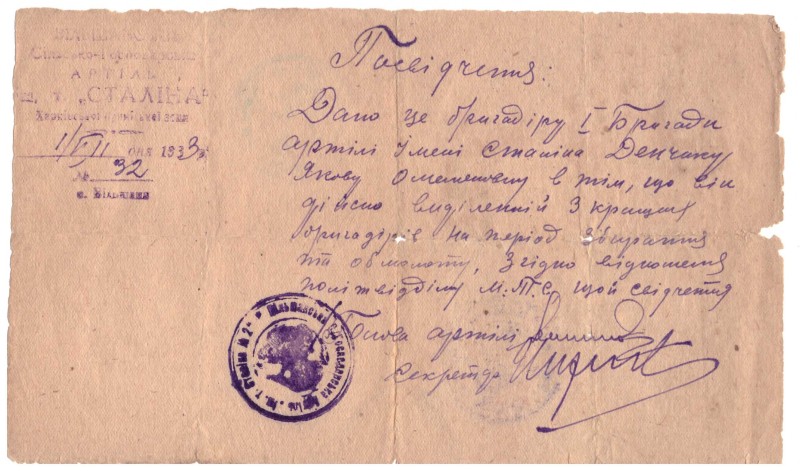 ВІЛЬШАНСЬКА
Сільсько-Господарська
АРТІЛЬ
ім. т. „СТАЛІНА"
Харківської приміської зони
1/VII дня 1933 р.
№ 32
с. Вільшани
Посвідчення:
Дано це бригадіру I Бригади
артілі Імені Сталіна Денчику
Якову Омеляновичу в тім, що він
дійсно виділений з кращих
бригадірів на період збирання
та обмолоту, згідно відношення
політвідділу М.Т.С. що й свідчення
Голова артілі
Секретар